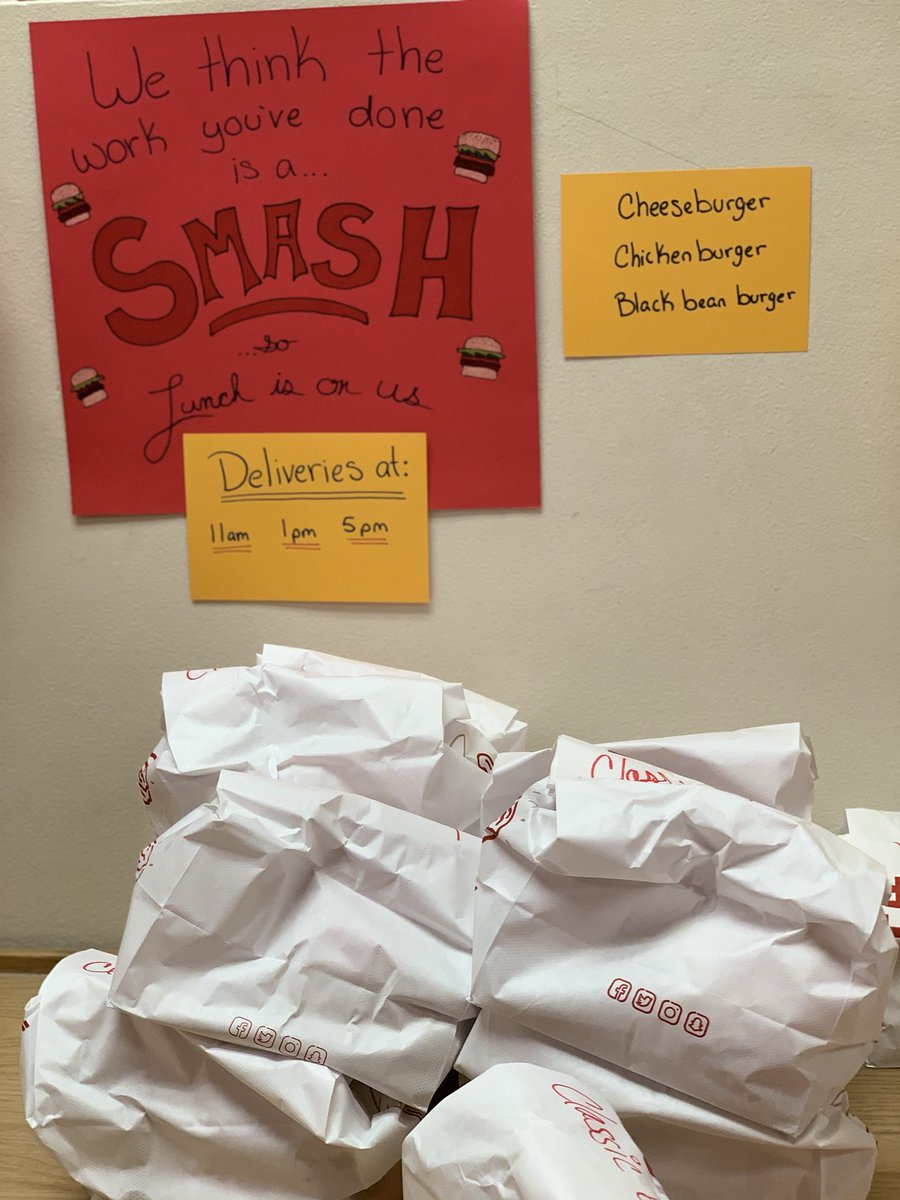 We think the
work you've done
is a...
SMASH
...so
Lunch is on us
Deliveries at:
11am 1pm 5pm
Cheeseburger
Chicken burger
Black bean burger
Classic
Classic